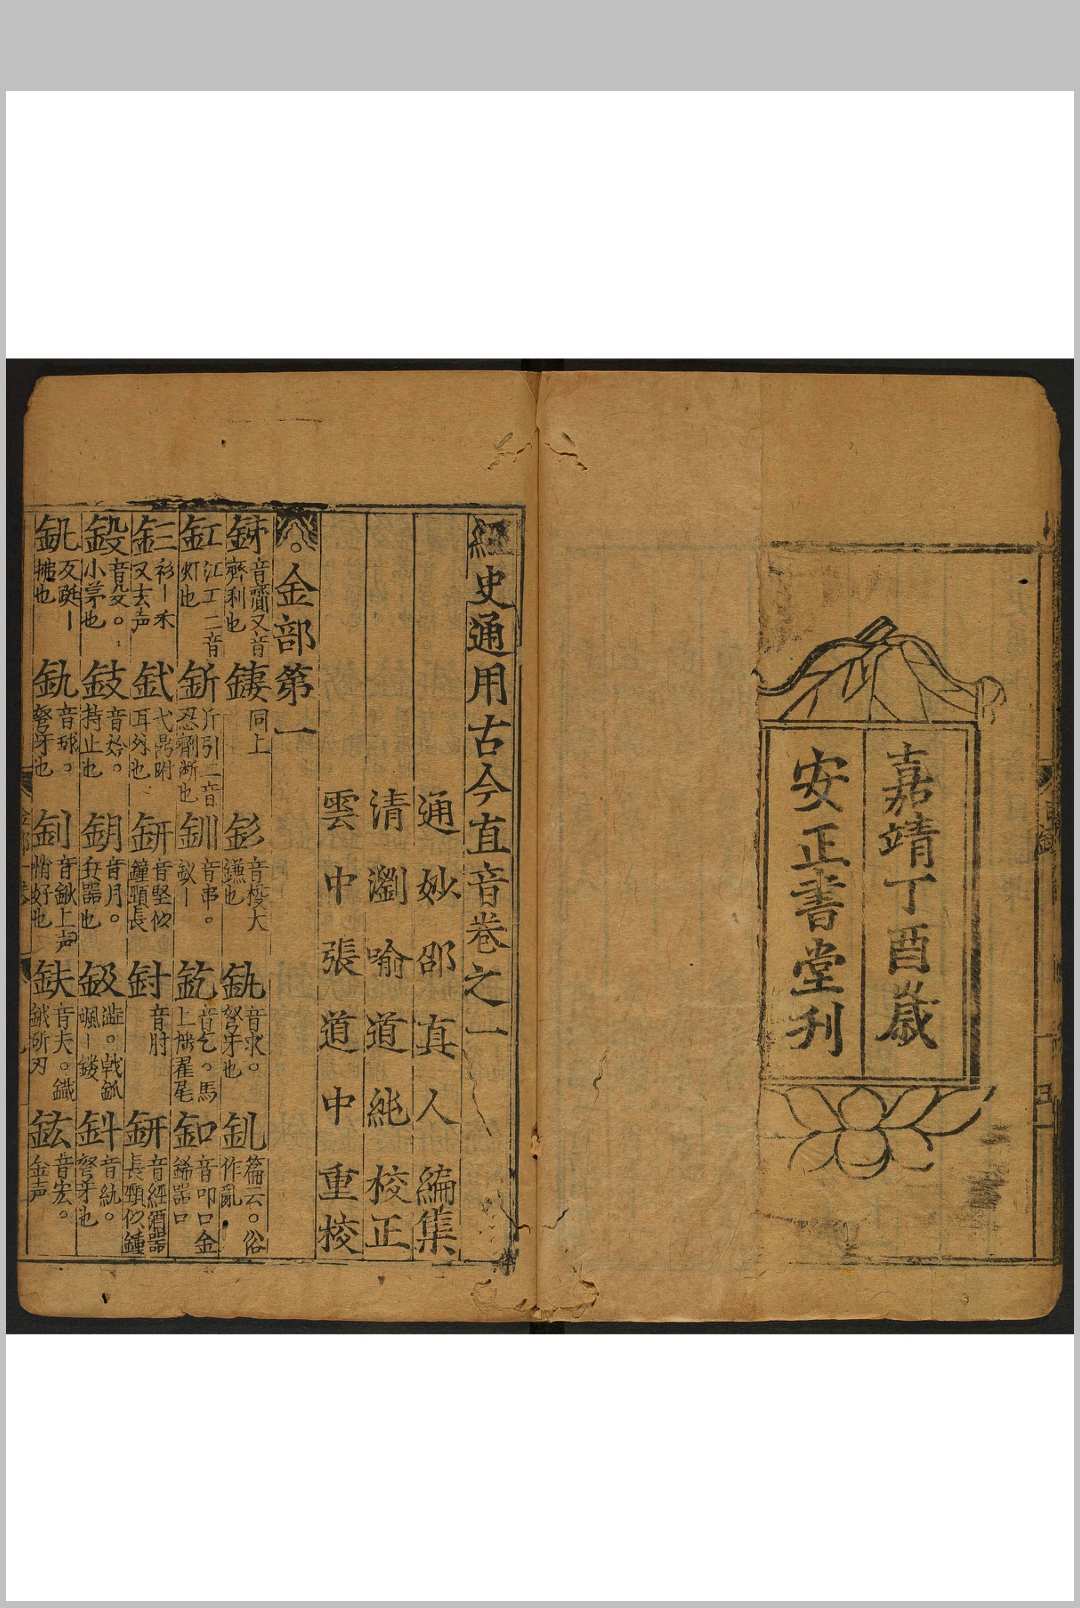 嘉靖丁酉嵗
安正書堂刋
經史通用古今直音卷之一
通妙邵真人編集
清瀏喻道純校正
雲中張道中重校
金部第一
音齋又音齊利也
同上
音梭大鎌也
釚音求。弩牙也
釓篇云。俗作亂
釭江工二音灯也
釿斤引二音忍劑斷也
釧音串。釵丨
釳音乞。馬上插翟尾
釦音叩口金飾器口
釤衫丨禾又去声
鈛弋昺附耳外也
鈃音堅似鐘頸長
釪音肘
鈃音經酒器長頸似鍾
音殳。小茅也
持止也
鈅音月。兵器也
鈒澁。戟
鈄音紏。弩牙也
音求。弩牙也
釗音鍬上声
鈇音夫。鐵鉞斫刃
鈜音宏。金声